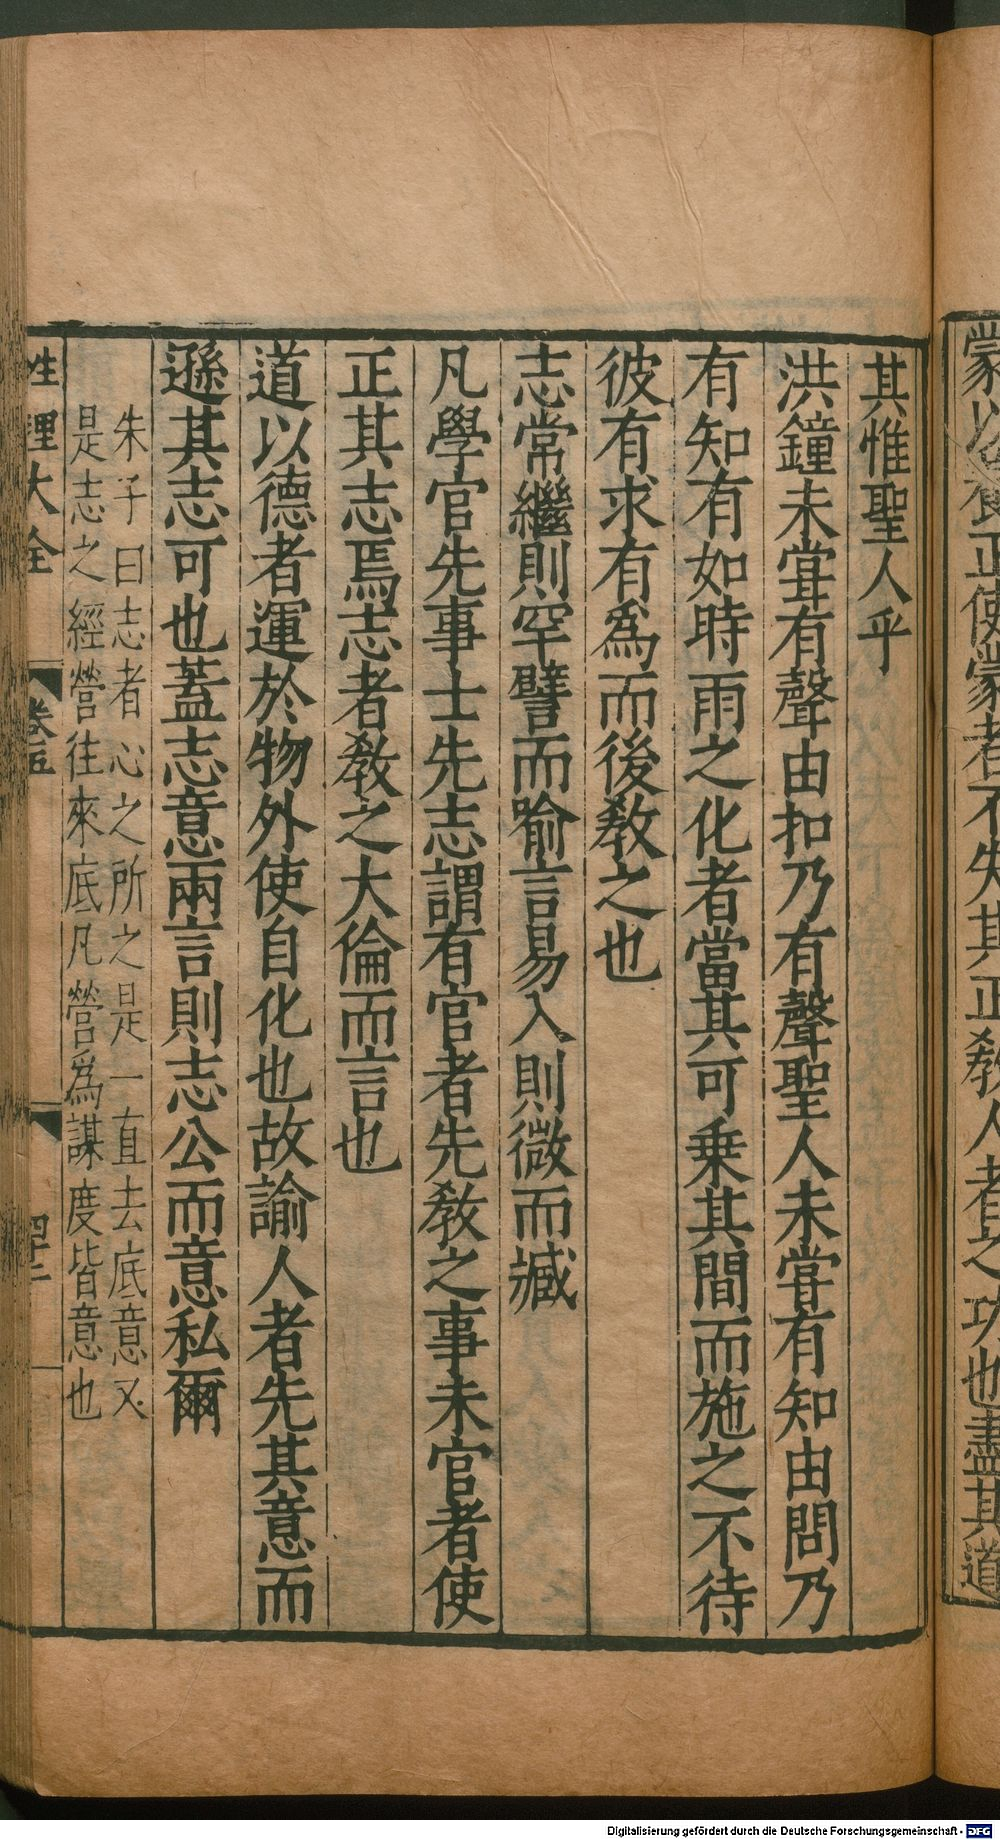 蒙以養正使蒙者不失其正教人者之功也盡其道
其惟聖人乎
洪鐘未甞有聲由扣乃有聲聖人未甞有知由問乃
有知有如時雨之化者當其可乗其間而施之不待
彼有求有爲而後教之也
志常繼則罕譬而喻言易入則微而臧
凡學官先事士先志謂有官者先教之事未官者使
正其志焉志者教之大倫而言也
道以德者運於物外使自化也故諭人者先其意而
遜其志可也蓋志意兩言則志公而意私爾
朱子曰志者心之所之是一直去底意又
是志之經營往來底凡營爲謀度皆意也
性理大全
卷五
四十二
Digitalisierung gefördert durch die Deutsche Forschungsgemeinschaft - DFG